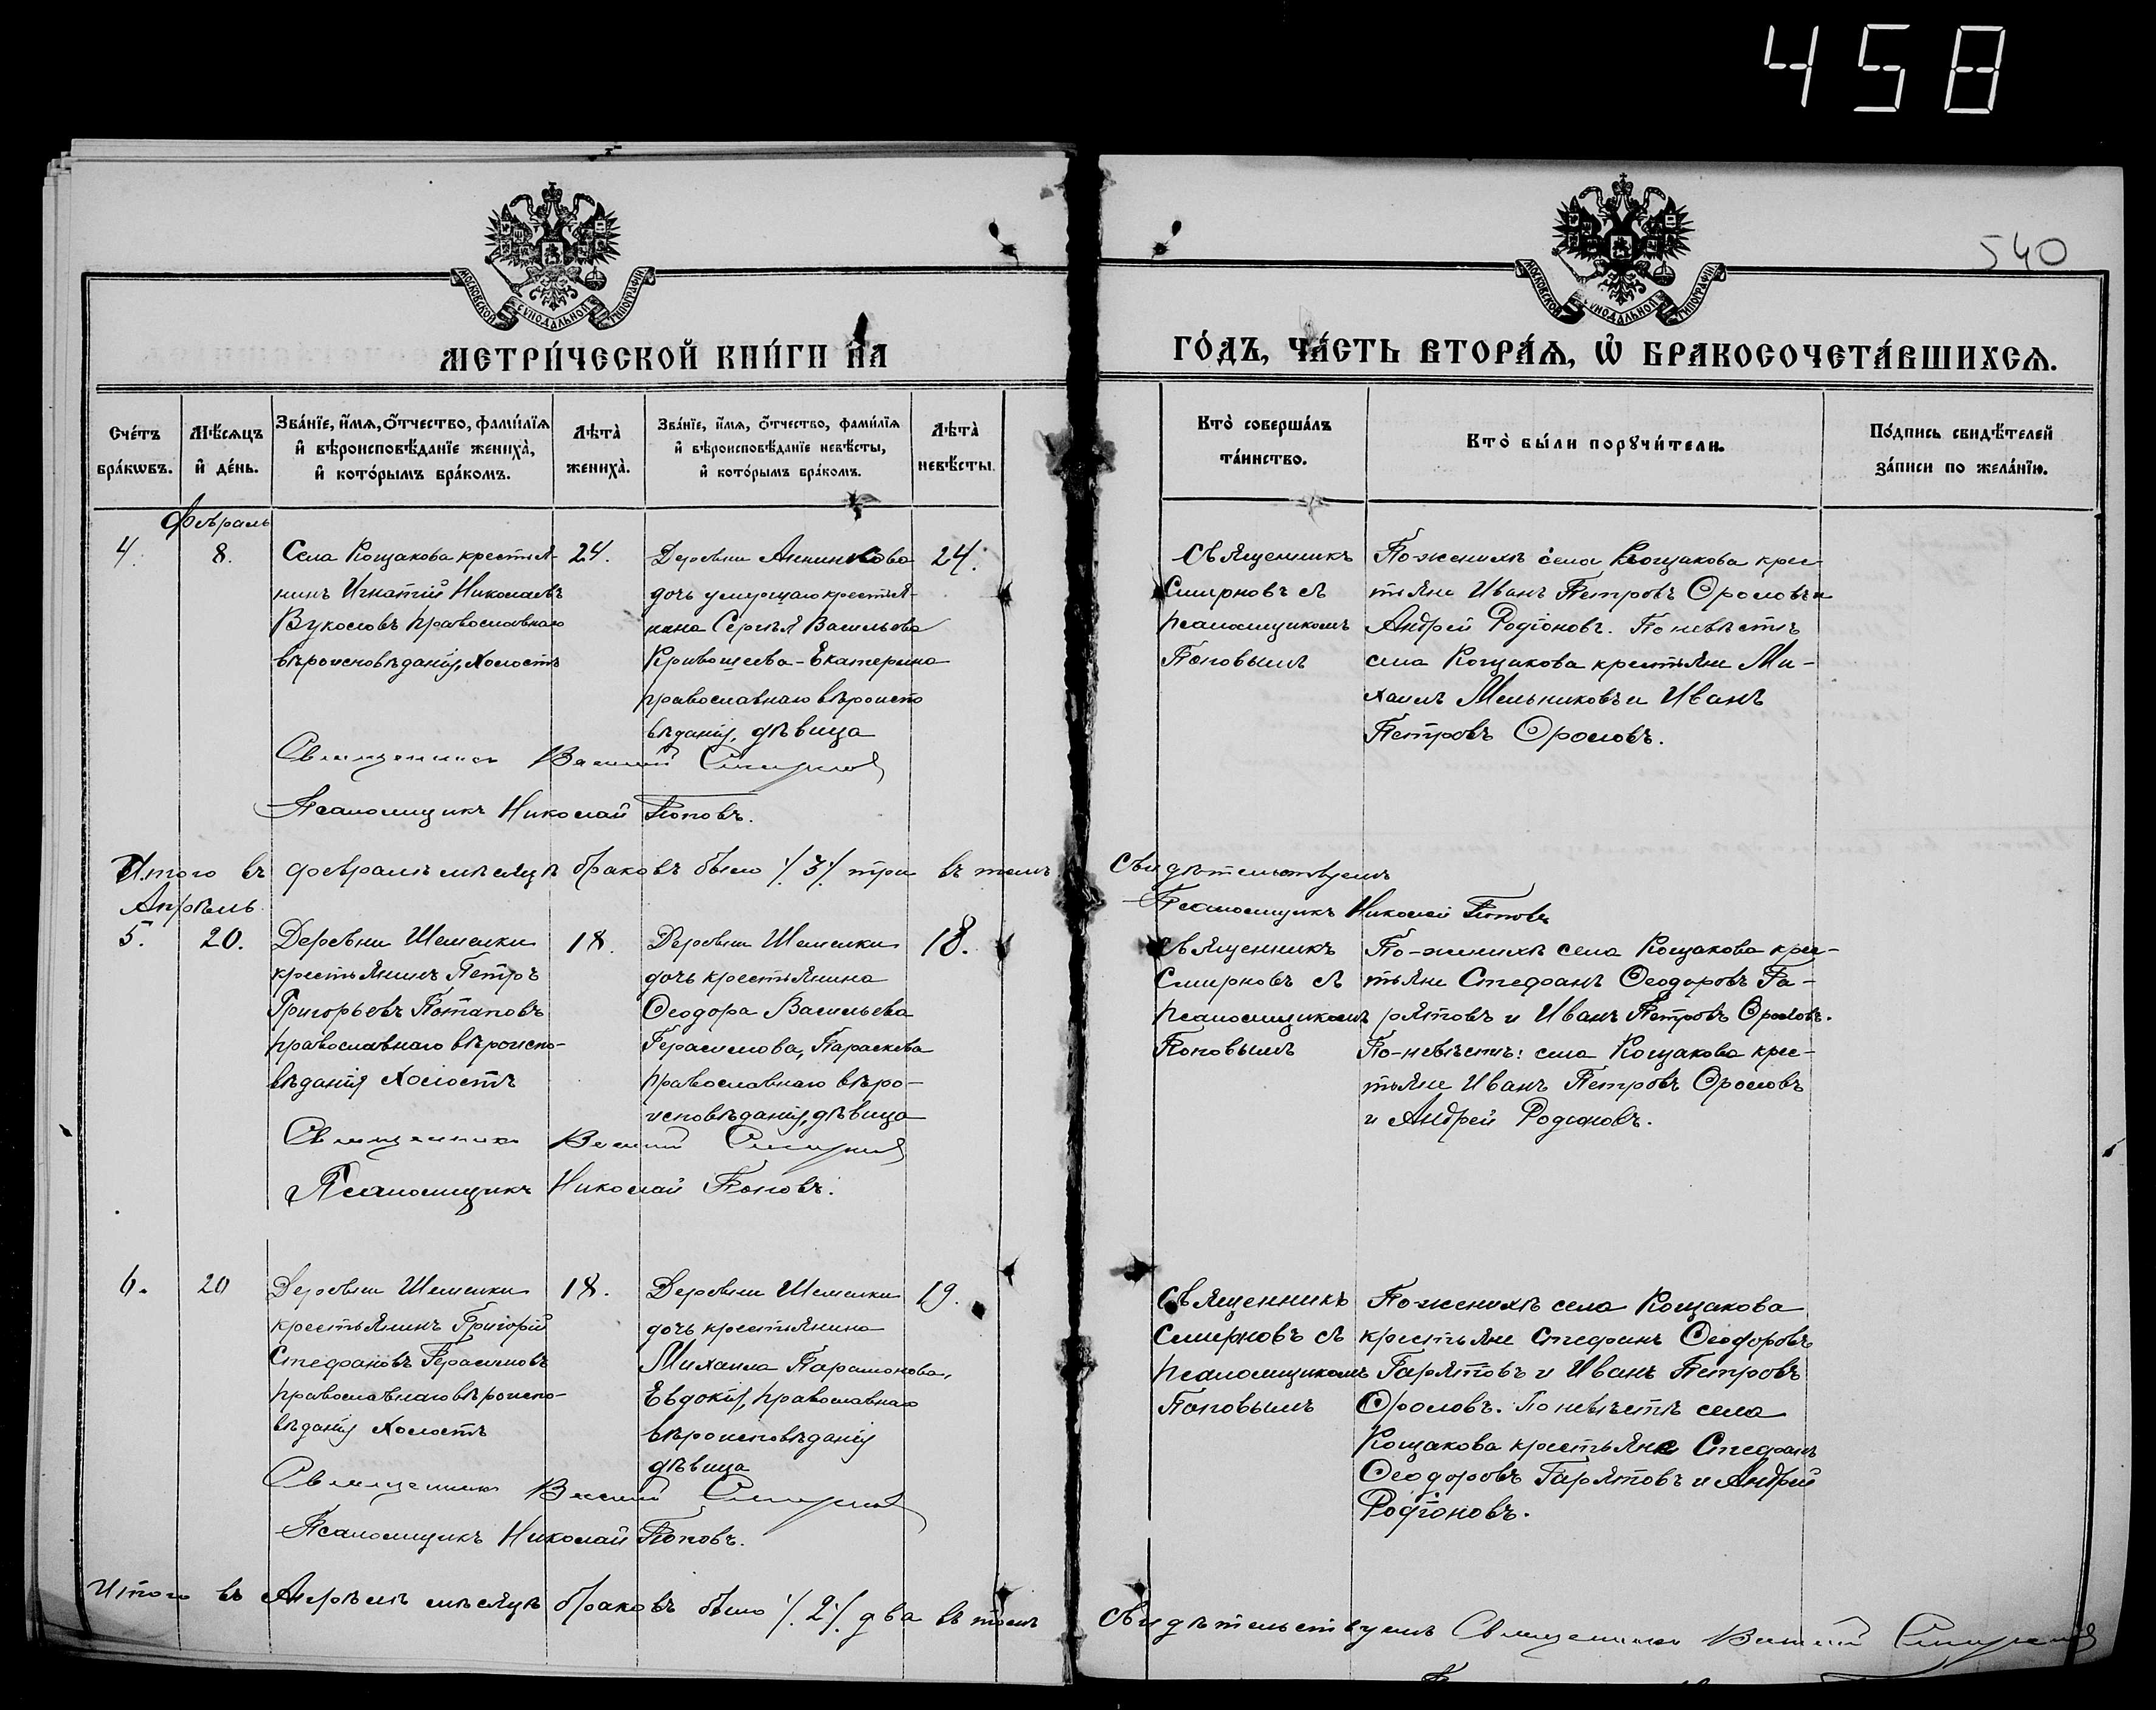 458
540
МОСКОВСКОЙ СѴНОДАЛЬНОЙ ТИПОГРАФІИ
МОСКОВСКОЙ СѴНОДАЛЬНОЙ ТИПОГРАФІИ
МЕТРИ́ЧЕСКОЙ КНИ́ГИ НА
ГО́ДЪ, ЧА́СТЬ ВТОРА́Ѧ, Ѡ҆ БРАКОСОЧЕТА́ВШИХСѦ.
Сче́тъ бра́кѡвъ.
Мѣ́сѧцъ и҆ де́нь.
Зва́нїе, и҆́мѧ, ѻ҆́тчество, фами́лїѧ и҆ вѣроисповѣ́данїе жениха̀, и҆ кото́рымъ бра́комъ.
Лѣта̀ жениха̀.
Зва́нїе, и҆́мѧ, ѻ҆́тчество, фами́лїѧ и҆ вѣроисповѣ́данїе невѣ́сты, и҆ кото́рымъ бра́комъ.
Лѣта̀ невѣ́сты.
Кто̀ соверша́лъ та́инство.
Кто̀ бы́ли порꙋчи́тели.
По́дпись свидѣ́телей за́писи по жела́нїю.
Февраль
4.
8.
Села Кощакова крестья-
нинъ Игнатій Николаевъ
Вуколовъ православнаго
вѣроисповѣданія, холостъ
24.
Деревни Аннинково
дочь умершаго крестья-
нина Сергѣя Васильева
Кривошеева - Екатерина
православнаго вѣроиспо
вѣданія, дѣвица
24.
Священникъ
Смирновъ съ
псаломщикомъ
Поповымъ
По-женихѣ села Кощакова крес-
тьяне Иванъ Петровъ Фроловъ и
Андрей Родіоновъ. По невѣстѣ
села Кощакова крестьяне Ми-
хаилъ Мельниковъ и Иванъ
Петровъ Фроловъ.
Священникъ Василій Смирновъ
Псаломщикъ Николай Поповъ.
Итого въ февралѣ мѣсяцѣ браковъ было /3/ три въ томъ свидѣтельствуемъ
Псаломщикъ Николай Поповъ
Апрѣль
5.
20.
Деревни Шемелки
крестьянинъ Петръ
Григорьевъ Потаповъ
православнаго вѣроиспо-
вѣданія холостъ
18.
Деревни Шемелки
дочь крестьянина
Ѳеодора Васильева
Герасимова, Параскева
православнаго вѣро-
исповѣданія, дѣвица
18.
Священникъ
Смирновъ съ
псаломщикомъ
Поповымъ
По-женихѣ села Кощакова крес-
тьяне Стефанъ Ѳеодоровъ Га-
рятовъ и Иванъ Петровъ Фроловъ.
По-невѣстѣ: села Кощакова крес-
тьяне Иванъ Петровъ Фроловъ
и Андрей Родіоновъ.
Священникъ Василій Смирновъ
Псаломщикъ Николай Поповъ.
6.
20
Деревни Шемелки
крестьянинъ Григорій
Стефановъ Герасимовъ
православнаго вѣроиспо-
вѣданія холостъ
18.
Деревни Шемелки
дочь крестьянина
Михаила Парамонова,
Евдокія, православнаго
вѣроисповѣданія
дѣвица
19.
Священникъ
Смирновъ съ
псаломщикомъ
Поповымъ
По-женихѣ села Кощакова
крестьяне Стефанъ Ѳеодоровъ
Гарятовъ и Иванъ Петровъ
Фроловъ. По невѣстѣ села
Кощакова крестьяне Стефанъ
Ѳеодоровъ Гарятовъ и Андрей
Родіоновъ.
Священникъ Василій Смирновъ
Псаломщикъ Николай Поповъ.
Итого въ Апрѣлѣ мѣсяцѣ браковъ было /2/ два въ томъ свидѣтельствуемъ Священникъ Василій Смирновъ